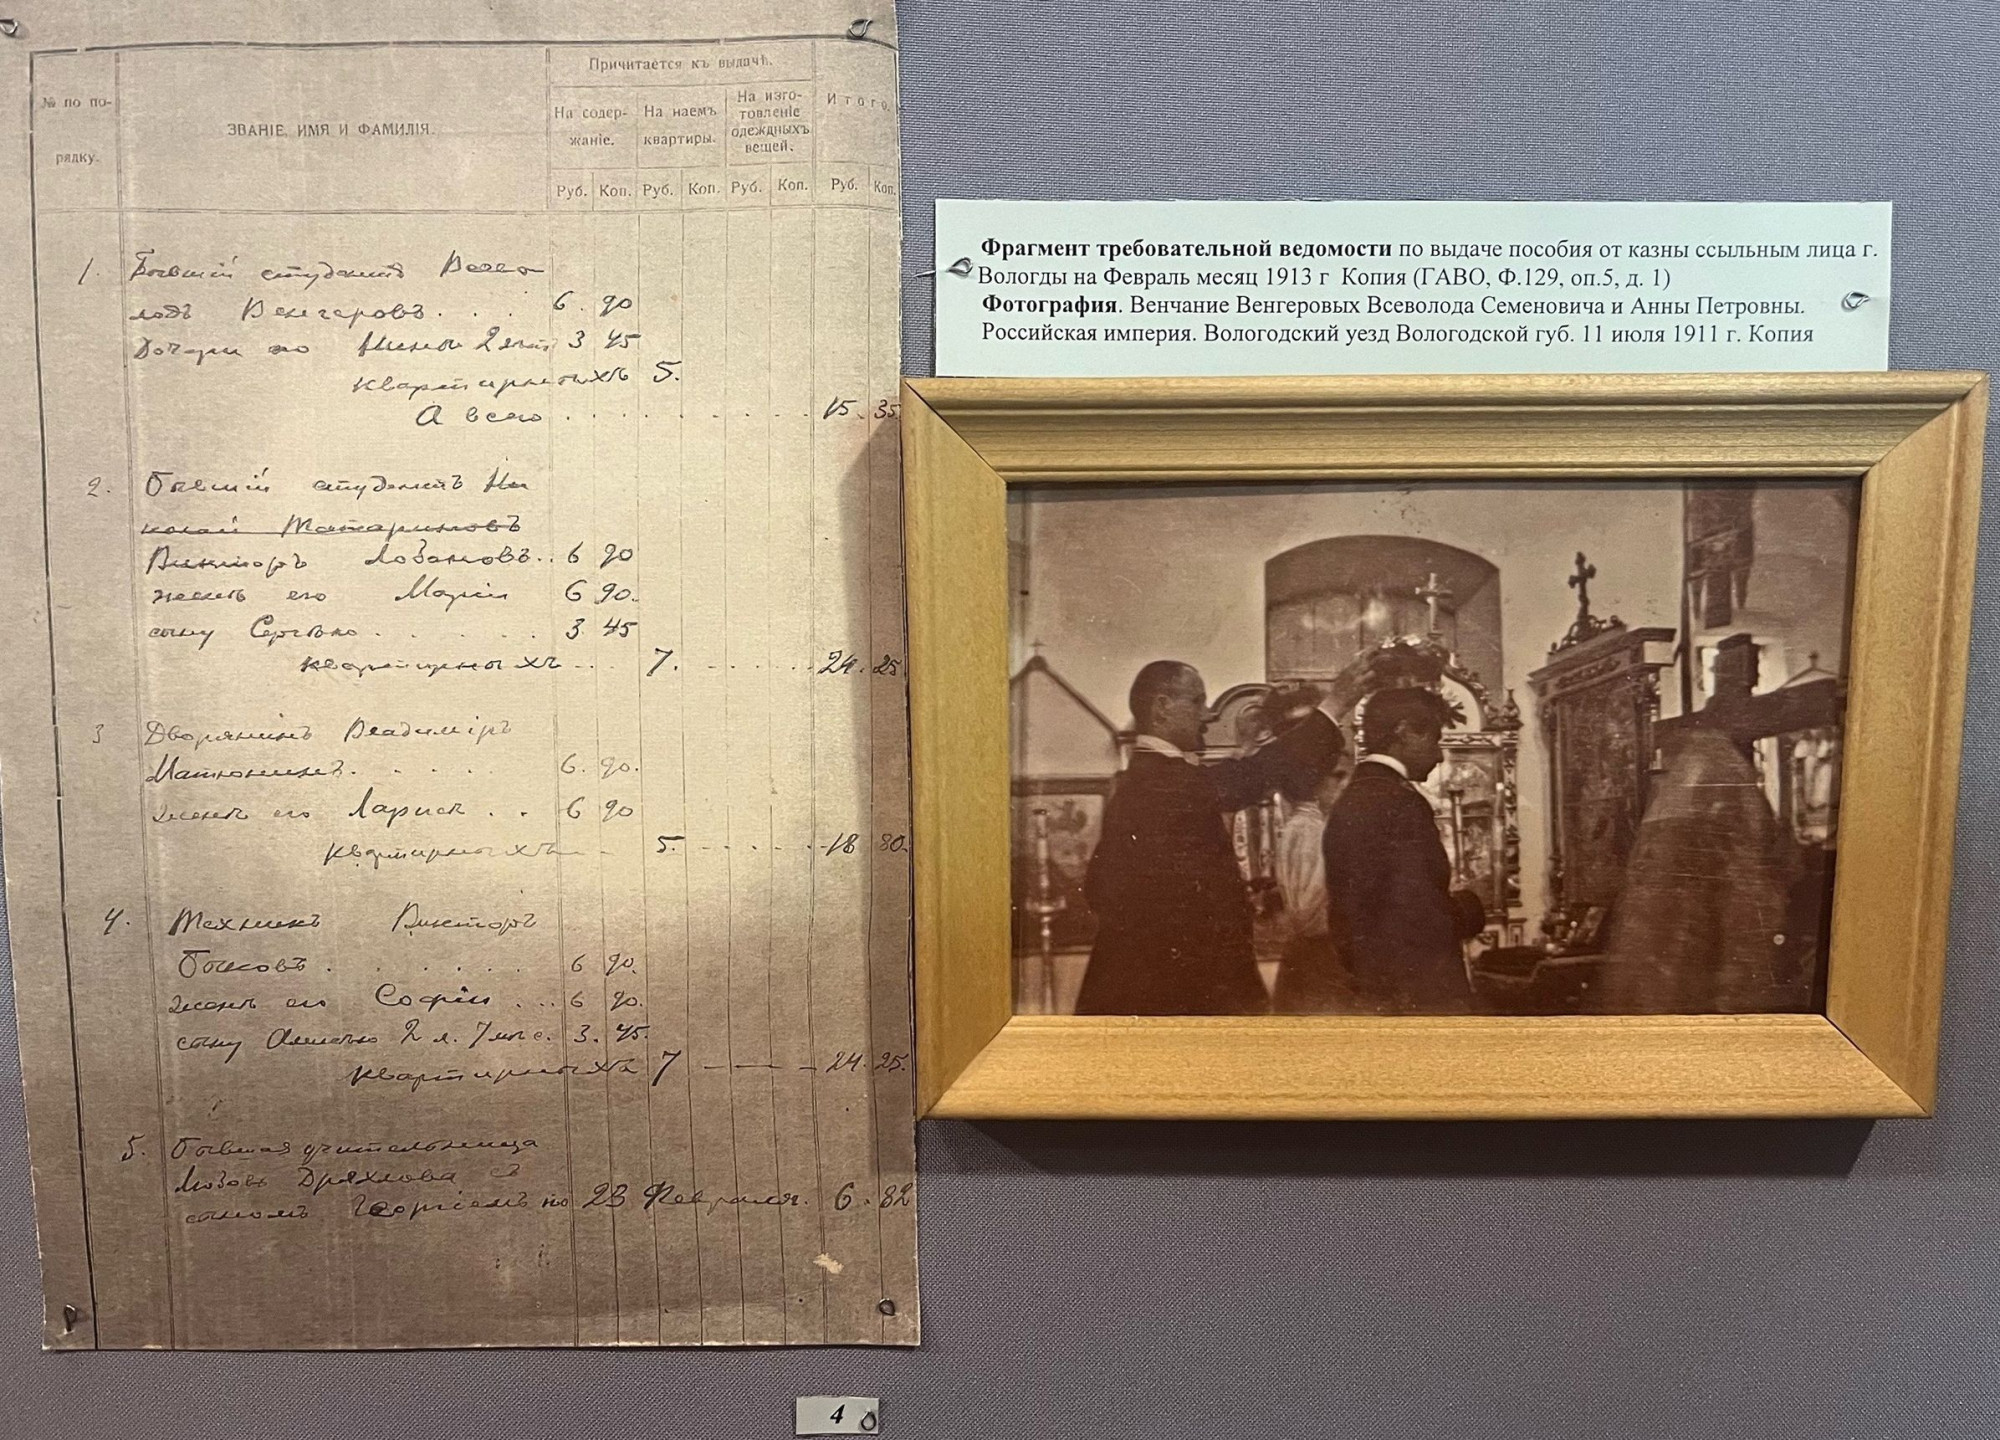 № по по-
рядку.
ЗВАНІЕ, ИМЯ И ФАМИЛІЯ.
Причитается къ выдачѣ.
На содер-
жаніе.
На наемъ
квартиры.
На изго-
товленіе
одеждныхъ
вещей.
Итого.
Руб. Коп. Руб. Коп. Руб. Коп. Руб. Коп.
1. Бывшій студентъ Всево
лодъ Венгеровъ . . . 6. 90
Дочери его Нины 2 лѣтъ 3 45
квартирныхъ 5.
А всего . . . . . . . . 15. 35
2. Бывшій студентъ Ни
колай Татариновъ
Викторъ Лобановъ . . 6 90
женѣ его Маріи 6 90.
сыну Сергѣю . . . . . 3 45
квартирныхъ . . . 7. . . . . . 24. 25
3 Дворянинъ Владиміръ
Матюнинъ. . . . . 6. 90.
женѣ его Ларисѣ . . 6 90
квартирныхъ 5. . . . . . 18 80.
4. Техникъ Викторъ
Быковъ . . . . . . 6 90.
женѣ его Софіи . . . 6 90.
сыну Алексѣю 2 л. 7 мѣс. 3. 45.
квартирныхъ 7 — — — 24. 25.
5. Бывшая учительница
Любовь Дряхлова съ
сыномъ Георгіемъ по 23 Февраля. 6. 82
Фрагмент требовательной ведомости по выдаче пособия от казны ссыльным лица г.
Вологды на Февраль месяц 1913 г Копия (ГАВО, Ф.129, оп.5, д. 1)
Фотография. Венчание Венгеровых Всеволода Семеновича и Анны Петровны.
Российская империя. Вологодский уезд Вологодской губ. 11 июля 1911 г. Копия
4